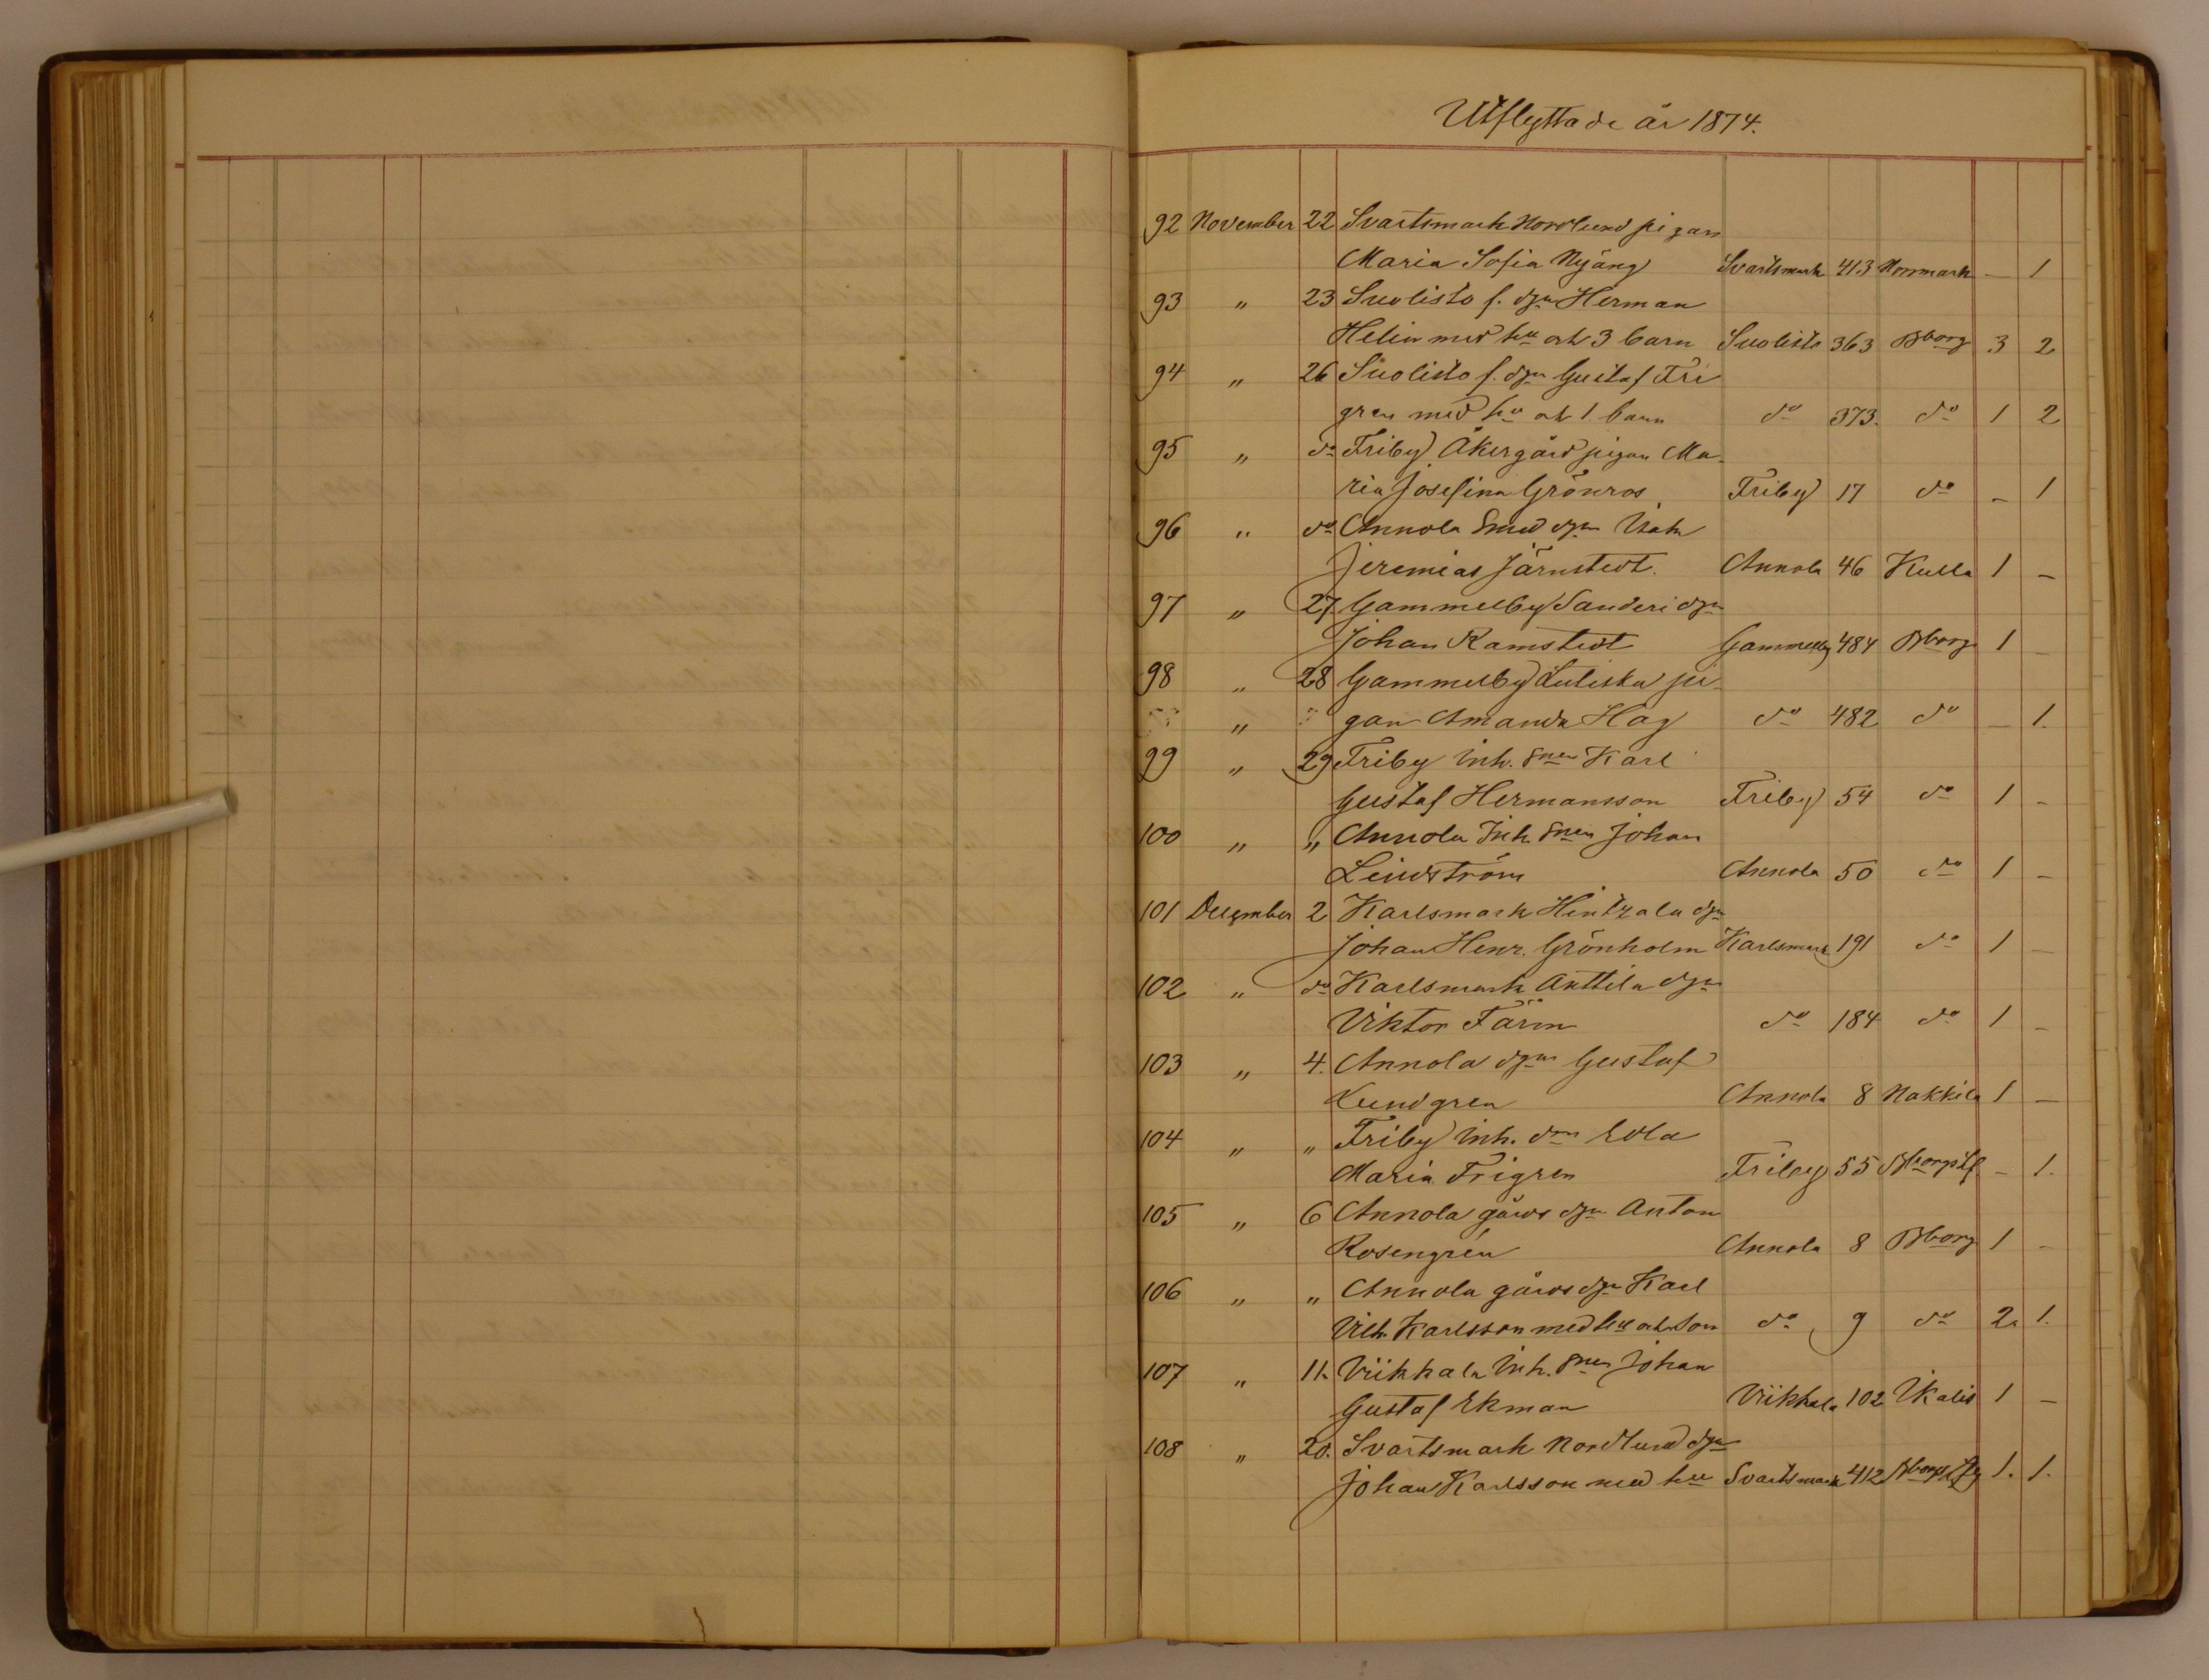 Utflyttade år 1874.
92 November 22 Svartsmark Nordlund pigan
Maria Sofia Nyäng Svartsmark 413 Norrmark — 1
93 " 23 Suolisto f. dgn Herman
Helin med hu och 3 barn Suolisto 363 Bborg 3 2
94 " 26 Suolisto f. dgn Gustaf Fri
gren med hu och 1 barn do 373. do 1 2
95 " do Friby Åkergård pigan Ma-
ria Josefina Grönros Friby 17 do — 1
96 " do Annola Smed dgn Isak
Jeremias Järnstedt. Annola 46 Kulla 1 —
97 " 27. Gammelby Sanderi dgn
Johan Ramstedt Gammelby 484 Bborg 1 —
98 " 28 Gammelby pi-
" gan Amanda Hag do 482 do — 1.
99 " 29 Friby inh. snen Karl
Gustaf Hermansson Friby 54 do 1 —
100 " " Annola Inh. snen Johan
Lindström Annola 50 do 1 —
101 December 2 Karlsmark Hintzala dgn
Johan Henr. Grönholm Karlsmark 191 do 1 —
102 " do Karlsmark Anttila dgn
Viktor Färm do 184 do 1 —
103 " 4. Annola dgn Gustaf
Lundgren Annola 8 Nakkila 1 —
104 " " Friby inh. drn Edla
Maria Frigren Friby 55 — 1.
105 " 6 Annola gårds dgn Anton
Rosengrén Annola 8 Bborg 1 —
106 " " Annola gårds dgn Karl
Vilh. Karlsson med hu och son do 9 do 2. 1.
107 " 11. Viikkala inh. snen Johan
Gustaf Ekman Viikkala 102 Ikalis 1 —
108 " 20. Svartsmark Nordlund dgn
Johan Karlsson med hu Svartsmark 412 1. 1.